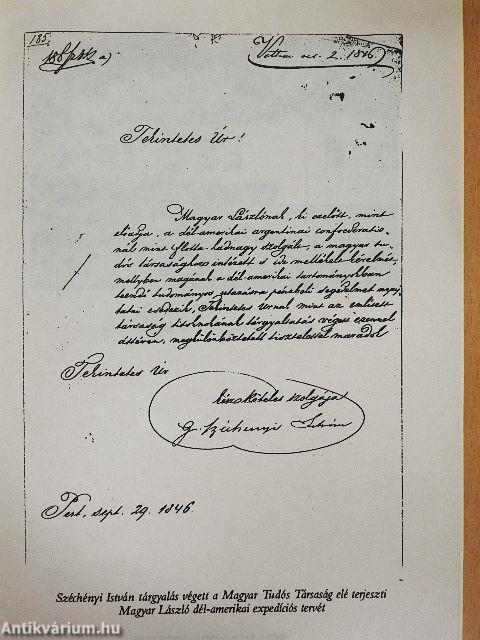 185.
Volt oct. 2. 1846.
Tekintetes Úr!
Magyar Lászlónak, ki ezelőtt, mint
előadja, a dél-amerikai argentinai confoederatio-
nál mint flotta-hadnagy szolgált; a magyar tu-
dós társasághoz intézett s ide mellékelt kérelmét,
mellyben magának a dél-amerikai tartományokban
teendő tudományos utazásra pénzbeli segedelmet nyuj-
tatni esedezik, Tekintetes Urnak mint az emlitett
társaság titoknokának tárgyaltatás végett ezennel
általtéve, megkülönböztetett tisztelettel maradok
Tekintetes Úr
kész köteles szolgája
G. Széchenyi István
Pest, sept. 29. 1846.
Széchényi István tárgyalás végett a Magyar Tudós Társaság elé terjeszti
Magyar László dél-amerikai expedíciós tervét
Antikvárium.hu